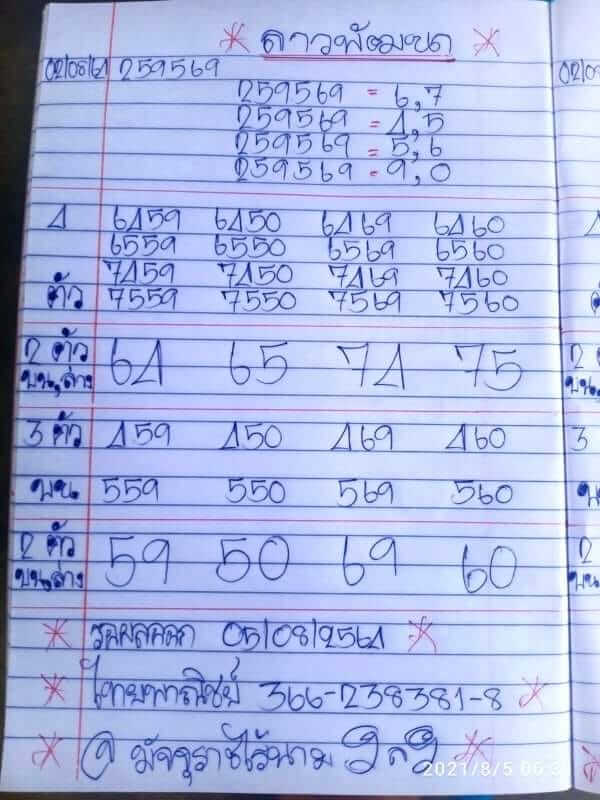 ลาวพัฒนา
02/08/64 259569
259569 = 6,7
259569 = 4,5
259569 = 5,6
259569 = 9,0
4 6459 6450 6469 6460
6559 6550 6569 6560
7459 7450 7469 7460
ตัว 7559 7550 7569 7560
2 ตัว 64 65 74 75
บน,ล่าง
3 ตัว 459 450 469 460
บน 559 550 569 560
2 ตัว 59 50 69 60
บน,ล่าง
รอผลออก 05/08/2564
ไทยพาณิชย์ 366-238381-8
มัจจุราชไร้นาม
2021/8/5 06:3